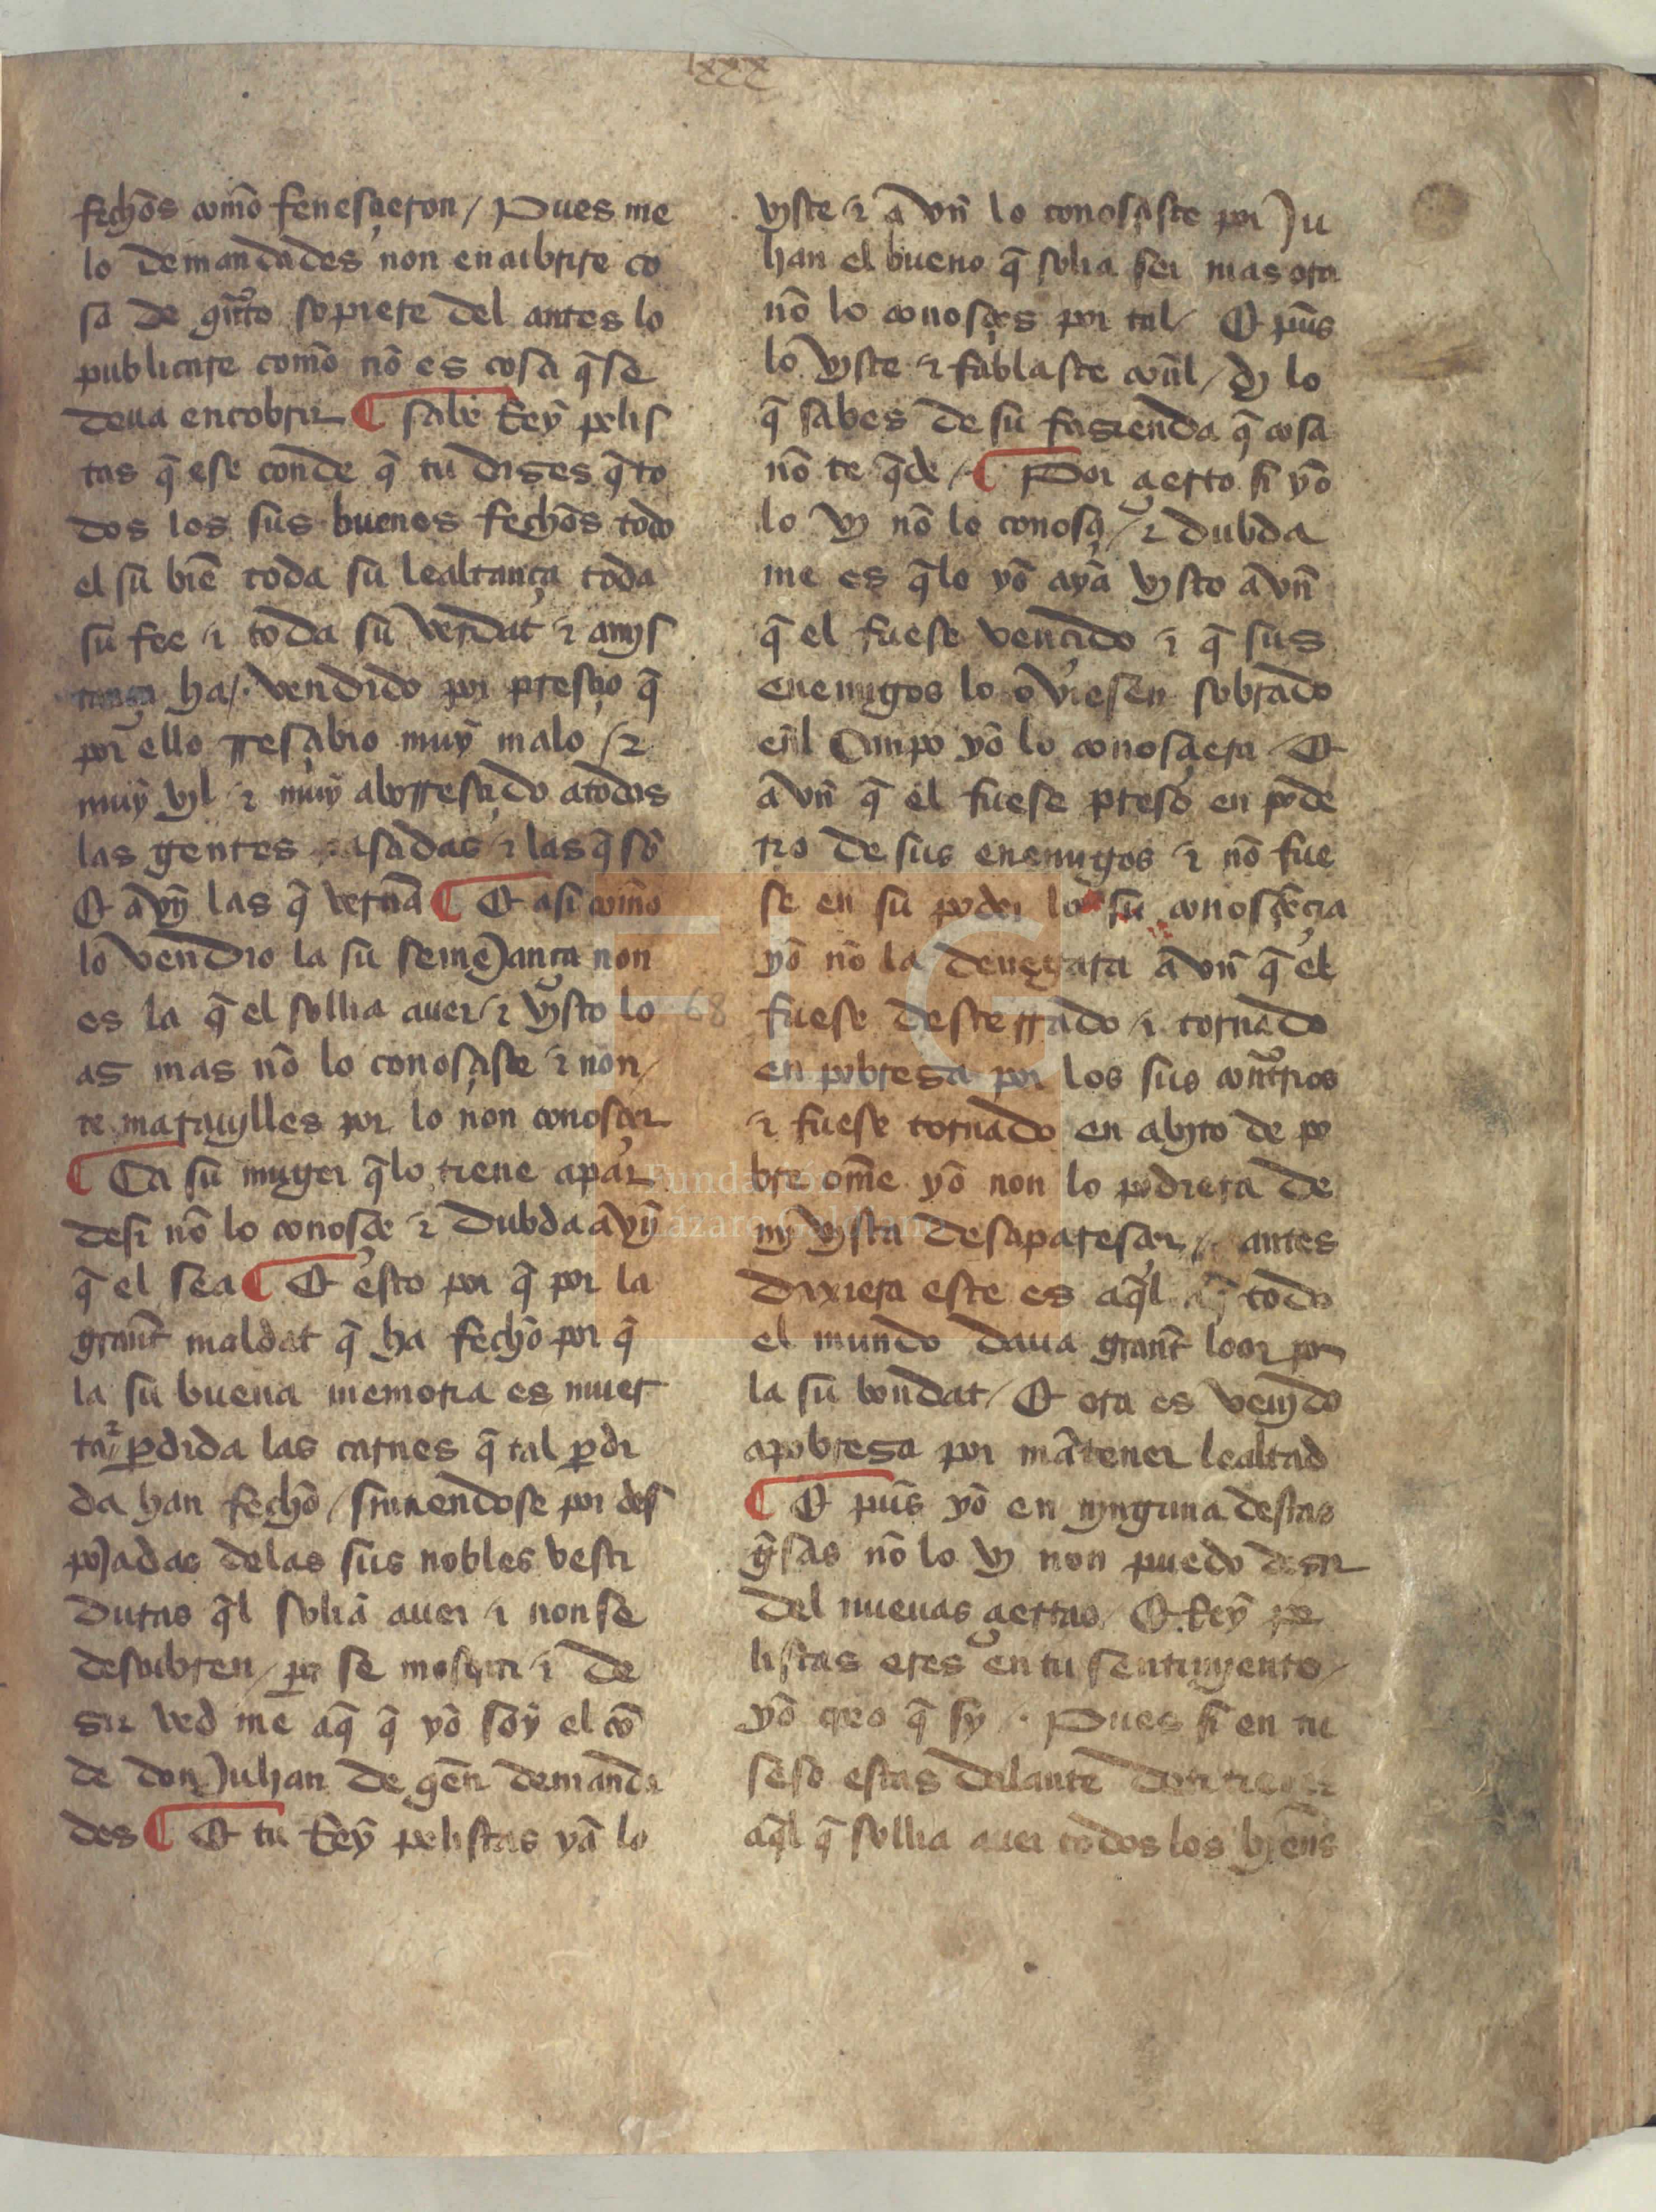 lxxx
fechõs comõ fenesçieron / Pues me
lo demandades non encubrire co
sa de q̃nto sopiere del antes lo
publicare comõ nõ es cosa q̃ se
deua encobrir ¶ sabe Rey pelis
tas q̃ ese conde q̃ tu dises q̃ to
dos los sus buenos fechõs todo
el su biẽ toda su lealtança toda
su fee ⁊ toda su verdat ⁊ amis
tança ha / vendido por presçio q̃
por ello rresçabio muỹ malo / ⁊
muỹ vil ⁊ muỹ aborresçido atodos
las gentes pasadas ⁊ las q̃ sõ
Et avỹ las q̃ vernã ¶ Et asi comõ
lo vendio la su semejança non
es la q̃ el sollia auer / ⁊ visto lo
as mas nõ lo conosçiste ⁊ non /
te marauylles por lo non conosçer
¶ Ca su muger q̃lo tiene apar
desi nõ lo conosçe ⁊ dubda avỹ
q̃ el sea ¶ Et esto por q̃ por la
grant maldat q̃ ha fechõ por q̃
la su buena memoria es muer
ta ⁊ ꝑdida las carnes q̃ tal ꝑdi
da han fechõ / sintiendose por des
pojadas delas sus nobles vesti
duras q̃l soliã auer ⁊ non se
descubren / ꝑa se mostrar ⁊ de
sir ved me aq̃ q̃ yõ soỹ el cõ
de don Juhan de q̃en demanda
des ¶ Et tu Rey pelistas yã lo
68
viste ⁊ a vñ lo conosçiste por Ju
han el bueno q̃ solia ser mas ora
nõ lo conosçes por tal / Et pũs
lo viste ⁊ fablaste coñl / di lo
q̃ sabes de su fasienda q̃ cosa
nõ te q̃de / ¶ Por çierto si yõ
lo vi nõ lo conosçi / ⁊ dubda
me es q̃lo yõ ayã visto a vñ
q̃ el fuese vencido ⁊ q̃ sus
enemigos lo oviesen sobrado
eñl Campo yõ lo conosçiera / Et
a vñ q̃ el fuese preso en pode
rio de sus enemigos ⁊ nõ fue
se en su poder lo su conosçẽcia
yõ nõ la denegara a vñ q̃ el
fuese desterrado ⁊ tornado
en pobresa por los sus contr̃rios
⁊ fuese tornado en abito de po
bre om̃e yõ non lo podiera de
mỹ vista desapareser / antes
dixiera este es aq̃l aq̃ todo
el mundo daua grant loor por
la su bondat / Et ora es venido
apobresa por mãtener lealtad
¶ Et pũs yõ en ninguna destas
g̃sas nõ lo vi non puedo desir
del nueuas çiertas / Et Rey pe
listas eres en tu sentimyento /
yõ creo q̃ sy / Pues si en tu
seso estas delante
aq̃l q̃ sollia auer todos los biẽns